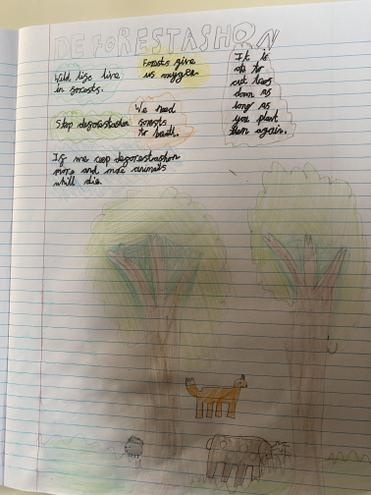 DEFORESTASHON
Wild life live
in forests.
Forests give
us oxygen.
It is
ok to
cut trees
down as
long as
you plant
them again.
Stop deforestashon
We need
forests
to
If we keep deforestashon
more and more animals
whill die.